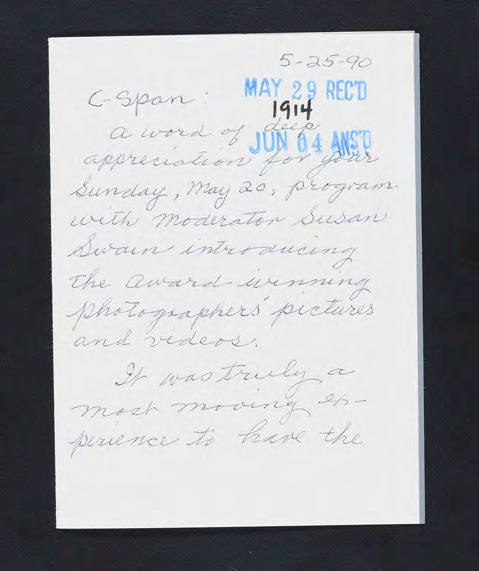 5-25-90
C-Span:
MAY 29 REC'D
1914
a word of deep
JUN 04 ANS'D
appreciation for your
Sunday, May 20, program
with moderator Susan
Swain introducing
the award winning
photographers' pictures
and videos.
It was truly a
most moving ex-
perience to have the